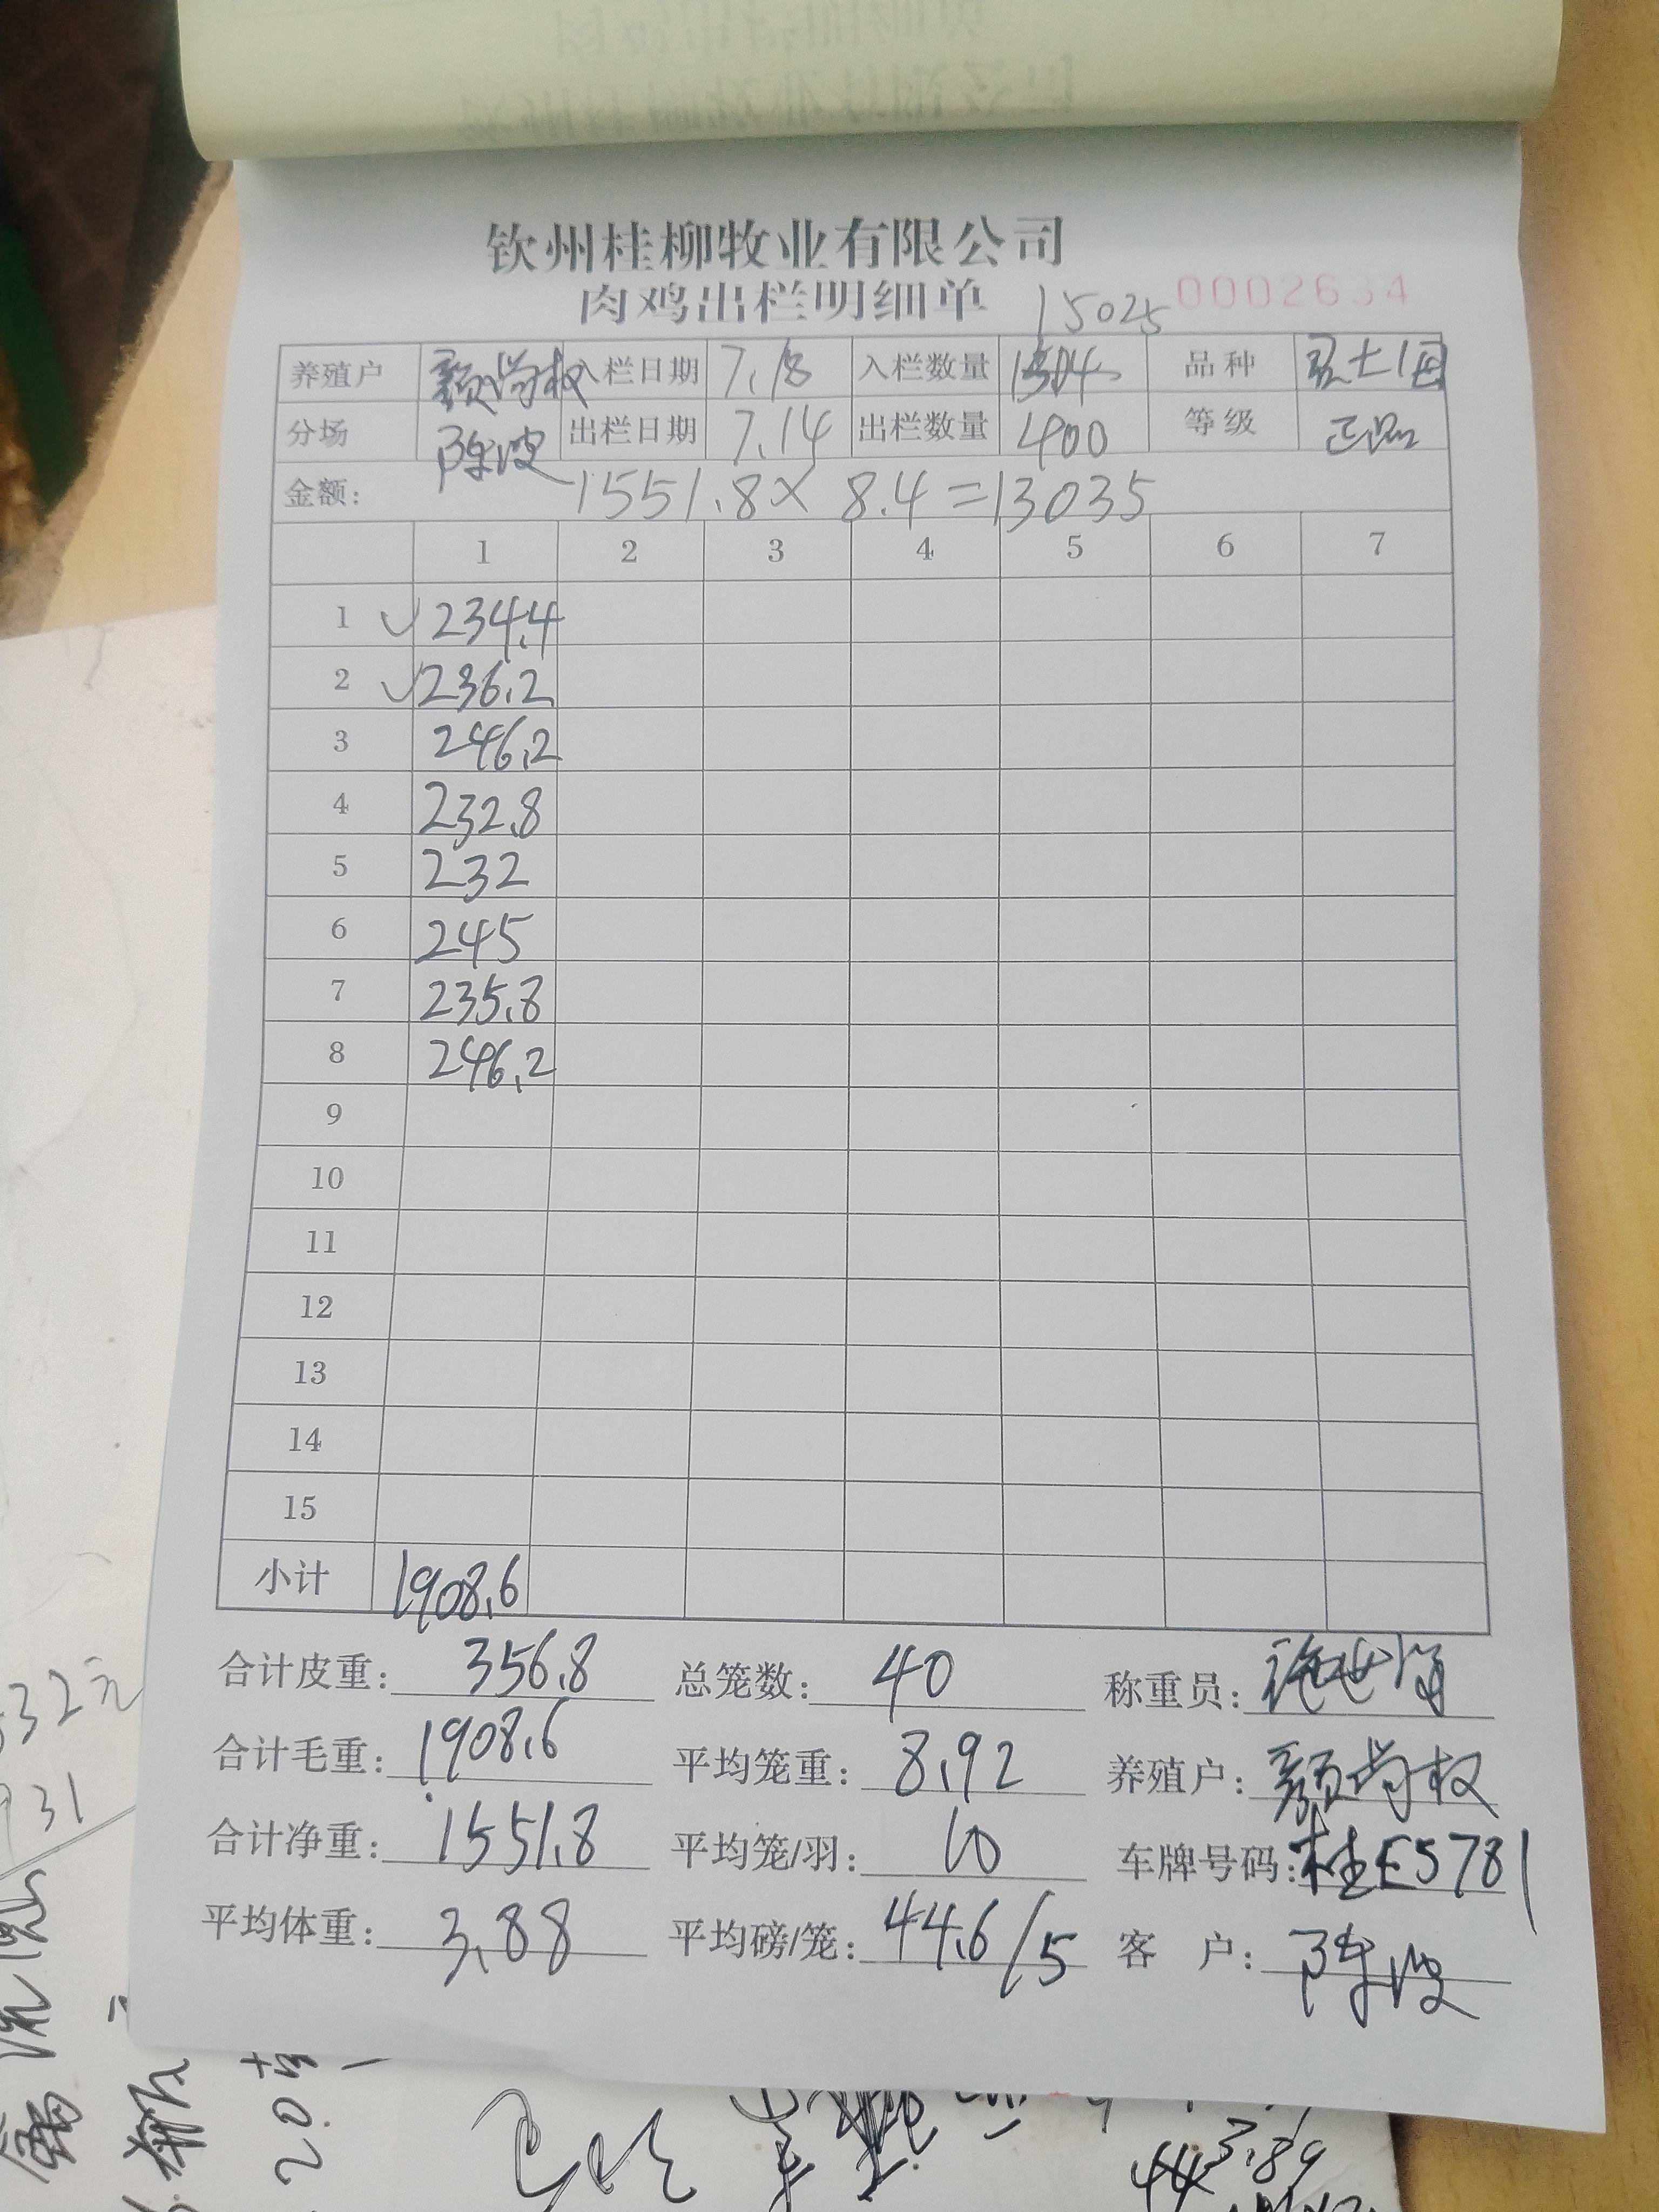 钦州桂柳牧业有限公司
肉鸡出栏明细单 15025 0002634
养殖户 颜尚权 入栏日期 7.18 入栏数量 品种
分场 陈波 出栏日期 7.14 出栏数量 400 等级 正品
金额: 1551.8×8.4=13035
1 2 3 4 5 6 7
1 ✓ 234.4
2 ✓ 236.2
3 246.2
4 232.8
5 232
6 245
7 235.8
8 246.2
9
10
11
12
13
14
15
小计 1908.6
合计皮重: 356.8 总笼数: 40 称重员:
合计毛重: 1908.6 平均笼重: 8.92 养殖户: 颜尚权
合计净重: 1551.8 平均笼/羽: 10 车牌号码: 桂E5781
平均体重: 3.88 平均磅/笼: 44.6/5 客户: 陈波
532元
931
20
3.89
44